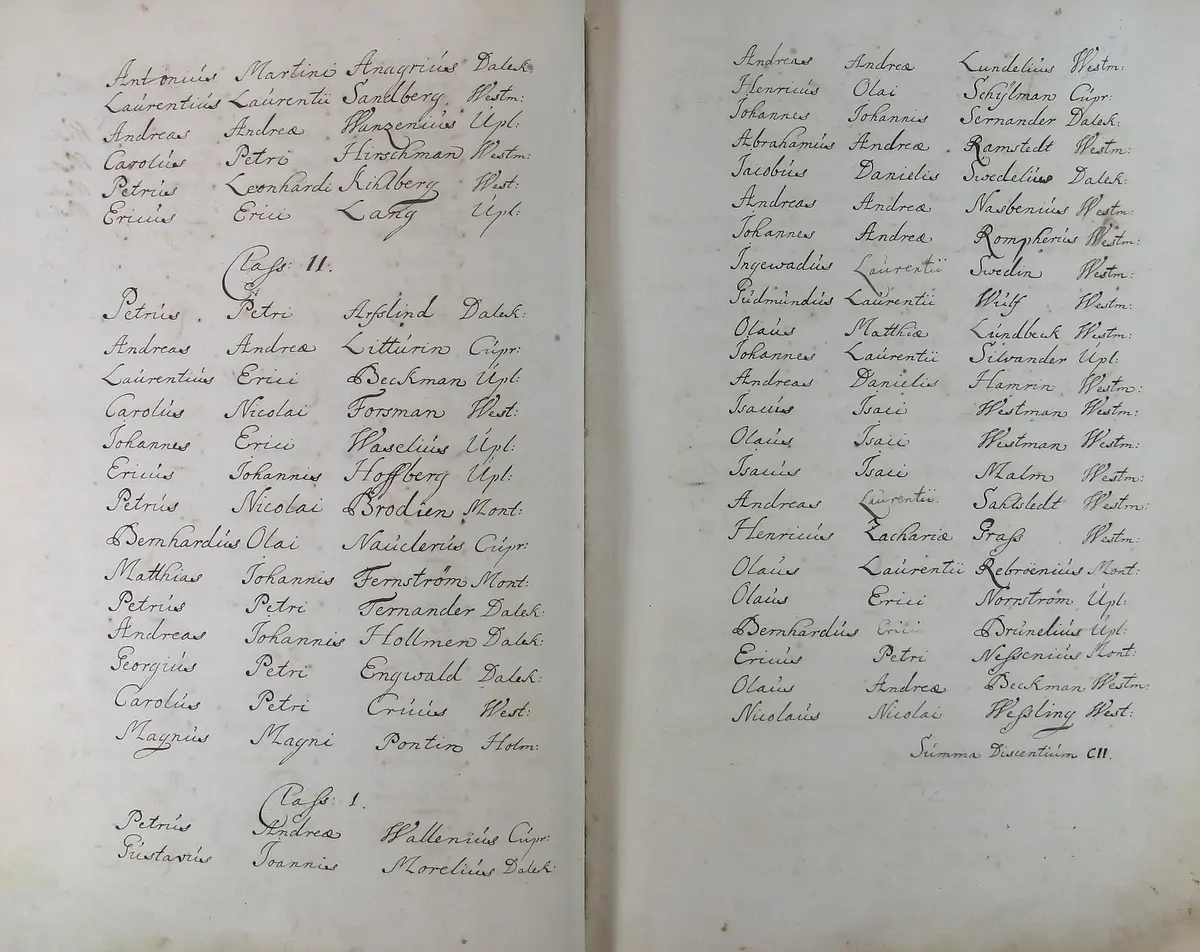 Antonius Martini Anagrius Dalek:
Laúrentiús Laúrentii Sandberg Westm:
Andreas Andreæ Wanzeniús Úpl:
Carolús Petri Hirschman Westm:
Petrús Leonhardi Kihlberg West:
Ericús Erici Lang Úpl:
Class: II.
Petrús Petri Arfslind Dalek:
Andreas Andreæ Littúrin Cúpr:
Laúrentiús Erici Beckman Úpl:
Carolús Nicolai Forsman West:
Iohannes Erici Waseliús Úpl:
Ericús Iohannis Hoffberg Úpl:
Petrús Nicolai Brodien Mont:
Bernhardús Olai Naúclerús Cúpr:
Matthias Iohannis Fernström Mont:
Petrús Petri Fernander Dalek:
Andreas Iohannis Hollmen Dalek:
Georgiús Petri Engwald Dalek:
Carolús Petri Crúús West:
Magnús Magni Pontin Holm:
Class: I.
Petrús Andreæ Walleniús Cúpr:
Gústavús Ioannis Moreliús Dalek:
Andreas Andreæ Lundelius Westm:
Henricús Olai Schÿlman Cúpr:
Iohannes Iohannis Sernander Dalek:
Abrahamús Andreæ Ramstedt Westm:
Iacobús Danielis Swedeliús Dalek:
Andreas Andreæ Nasbeniús Westm:
Iohannes Andreæ Rompheriús Westm:
Ingewadús Laúrentii Swedin Westm:
Gúdmúndús Laúrentii Wúlf Westm:
Olaús Matthiæ Lúndbeck Westm:
Iohannes Laúrentii Silvander Úpl:
Andreas Danielis Hamrin Westm:
Isacús Isaci Westman Westm:
Olaús Isaci Westman Westm:
Isacús Isaci Malm Westm:
Andreas Laúrentii Sahlstedt Westm:
Henricús Zachariæ Grass Westm:
Olaús Laúrentii Rebroëniús Mont:
Olaús Erici Norrström Úpl:
Bernhardús Erici Brúneliús Úpl:
Ericús Petri Nesseniús Mont:
Olaús Andreæ Beckman Westm:
Nicolaús Nicolai Wessling West:
Súmma Discentiúm CII.